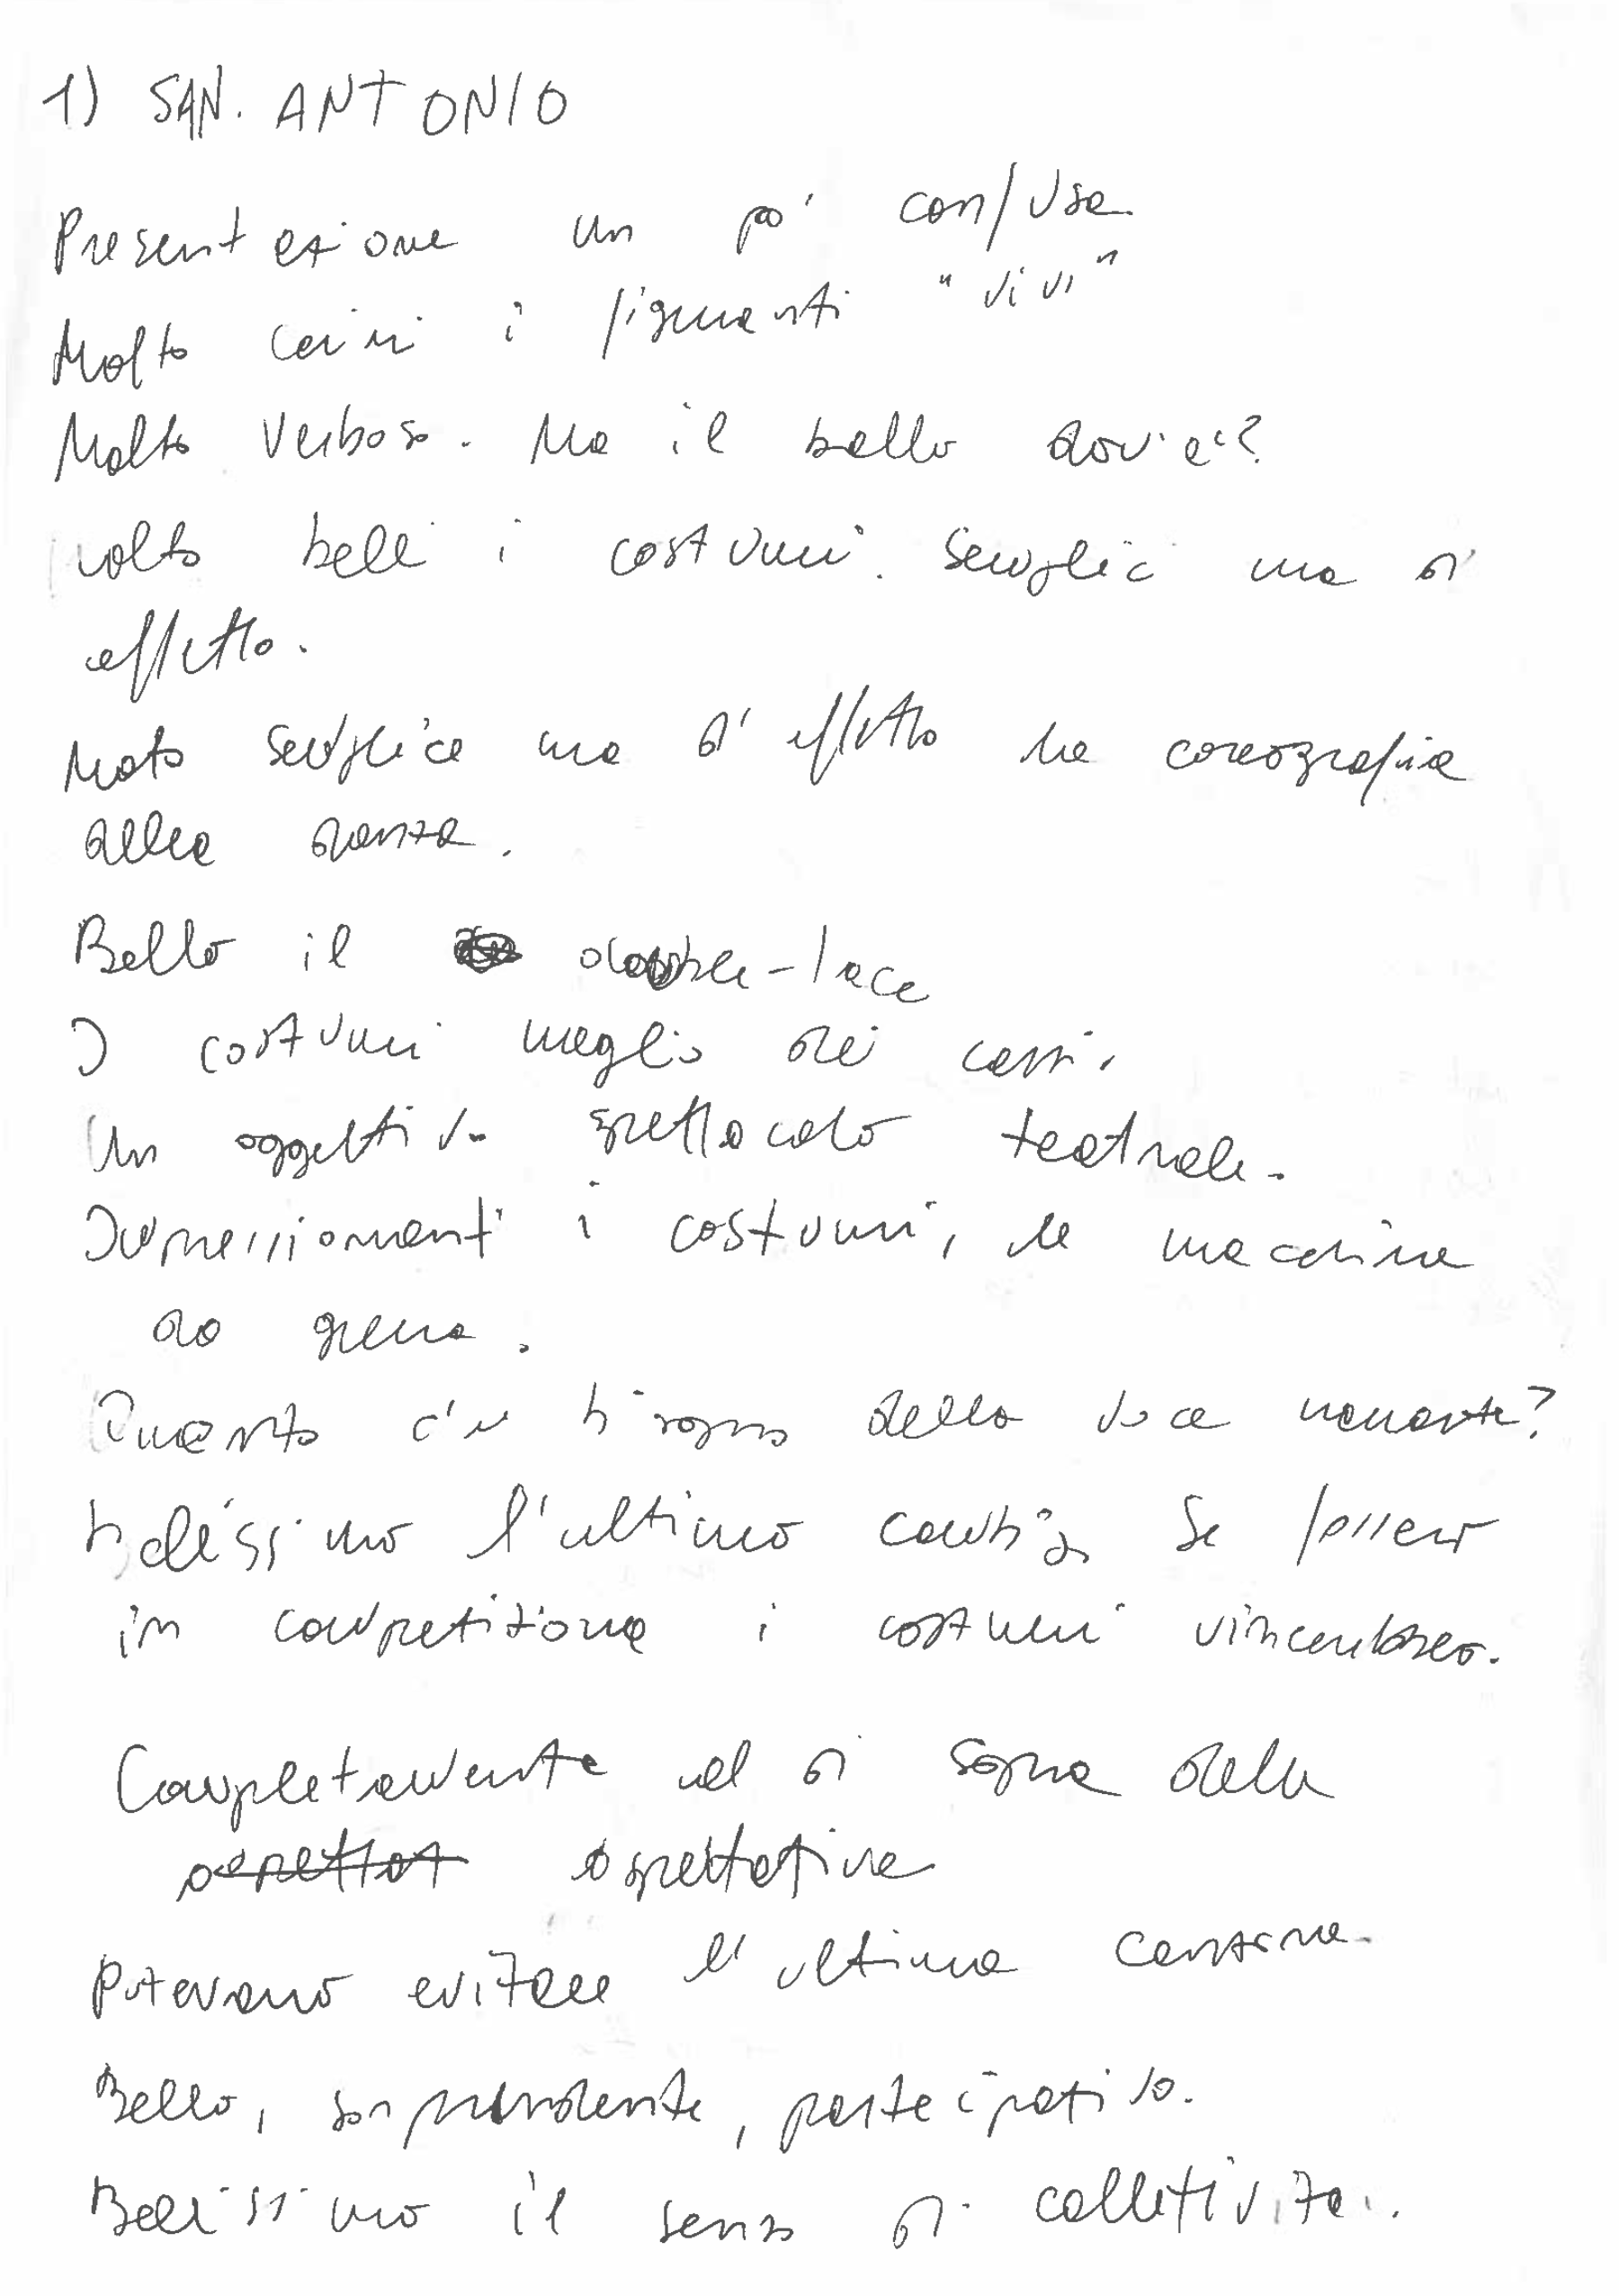 1) SAN. ANTONIO
Presentazione un po' confusa
Molto carini i figuranti "vivi"
Molto verboso. Ma il bello dov'è?
Molto belli i costumi. Semplici ma di
effetto.
Molto semplice ma di effetto la coreografia
della danza.
Bello il double-face
I costumi meglio dei carri.
Un oggettivo spettacolo teatrale.
Impressionanti i costumi, le macchine
da guerra.
Quanto c'è bisogno della voce narrante?
bellissimo l'ultimo cambio. Se fossero
in competizione i costumi vincerebbero.
Completamente al di sopra delle
aspettative
Potevano evitare l'ultima canzone.
Bello, sorprendente, partecipativo.
Bellissimo il senso di collettività.